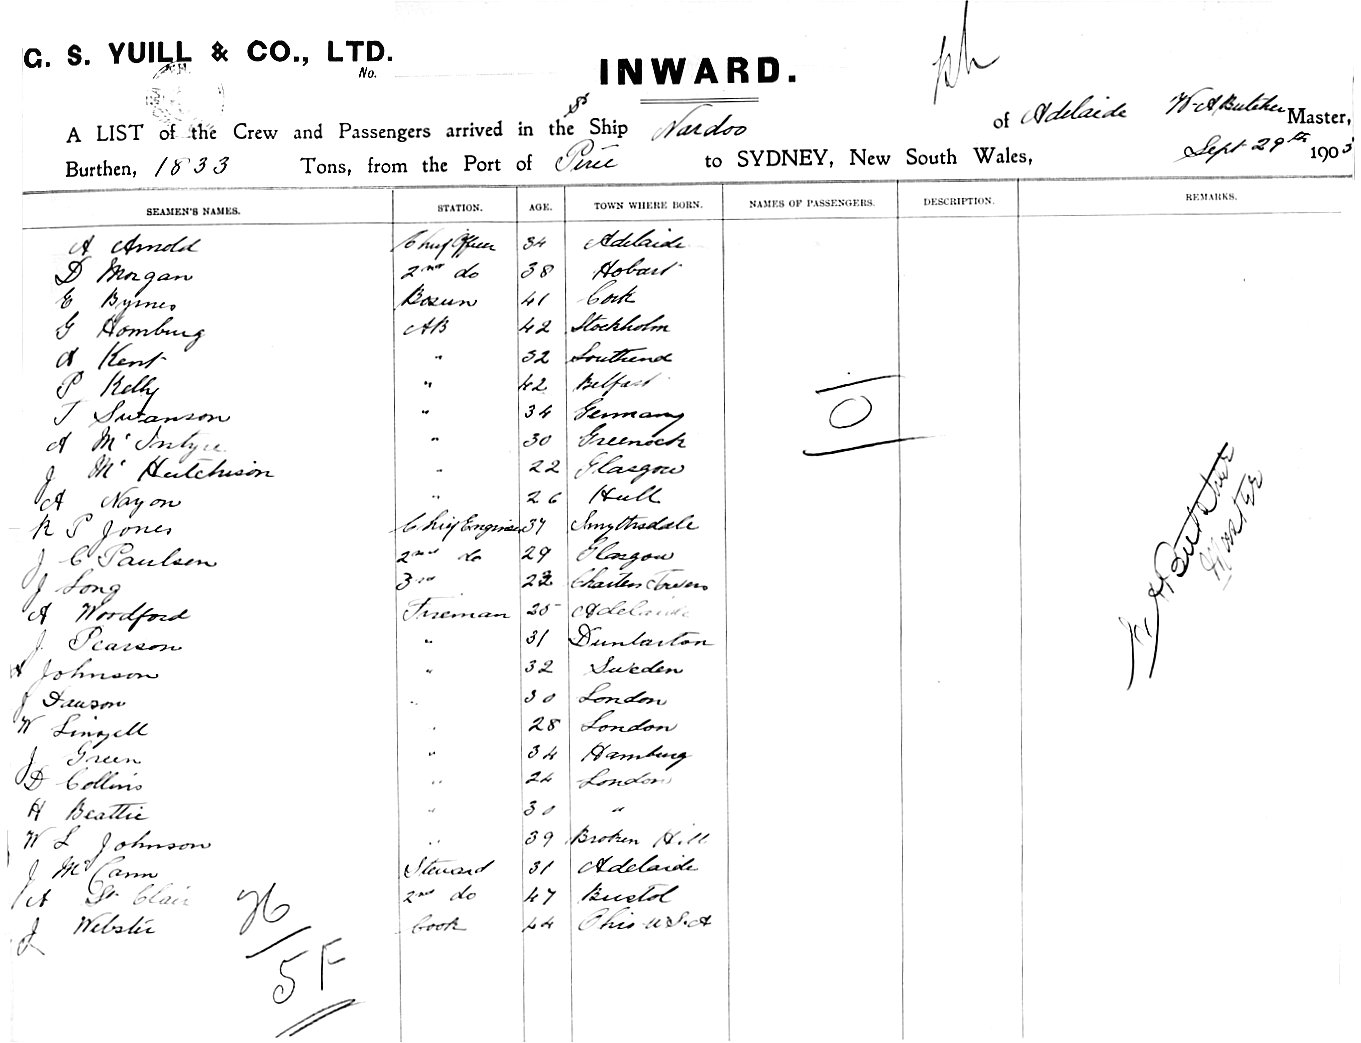 G. S. YUILL & CO., LTD.
No.
INWARD.
A LIST of the Crew and Passengers arrived in the SS Ship Nardoo of Adelaide W A Butcher Master,
Burthen, 1833 Tons, from the Port of Pirie to SYDNEY, New South Wales, Sept 29th 1903
SEAMEN'S NAMES. STATION. AGE. TOWN WHERE BORN. NAMES OF PASSENGERS. DESCRIPTION. REMARKS.
A Arnold Chief Officer 34 Adelaide
D Morgan 2nd do 38 Hobart
E Byrnes Bosun 41 Cork
G Homburg AB 42 Stockholm
A Kent " 32 Southend
P Kelly " 42 Belfast
J Swanson " 34 Germany
A McIntyre " 30 Greenock
J Mc Hutchison " 22 Glasgow
A Nayon " 26 Hull
R P Jones Chief Engineer 37 Smythsdale
J C Paulsen 2nd do 29 Glasgow
J Long 3rd Charters Towers
A Woodford Fireman 25 Adelaide
J Pearson " 31 Dunbarton
A Johnson " 32 Sweden
J Dawson " 30 London
W Lingell " 28 London
J Green " 34 Hamburg
D Collins " 24 London
H Beattie " 30 "
W L Johnson " 39 Broken Hill
J McCann Steward 31 Adelaide
A St Clair 2nd do 47 Bristol
J Webster Cook 44 Ohio U.S.A
0
W A Butcher
Master
26
5F